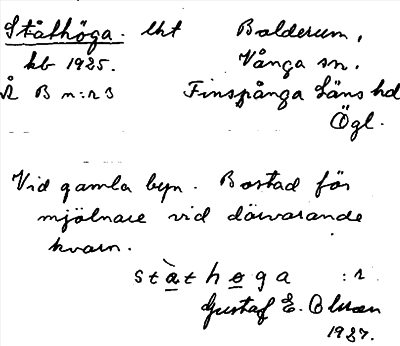 Ståthöga. lht Balderum,
kb 1925. Vånga sn.
Å B n:r 3 Finspånga Läns hd
Ögl.
Vid gamla byn. Bostad för
mjölnare vid därvarande
kvarn.
stàthøga :r
Gustaf E. Olsson
1937.